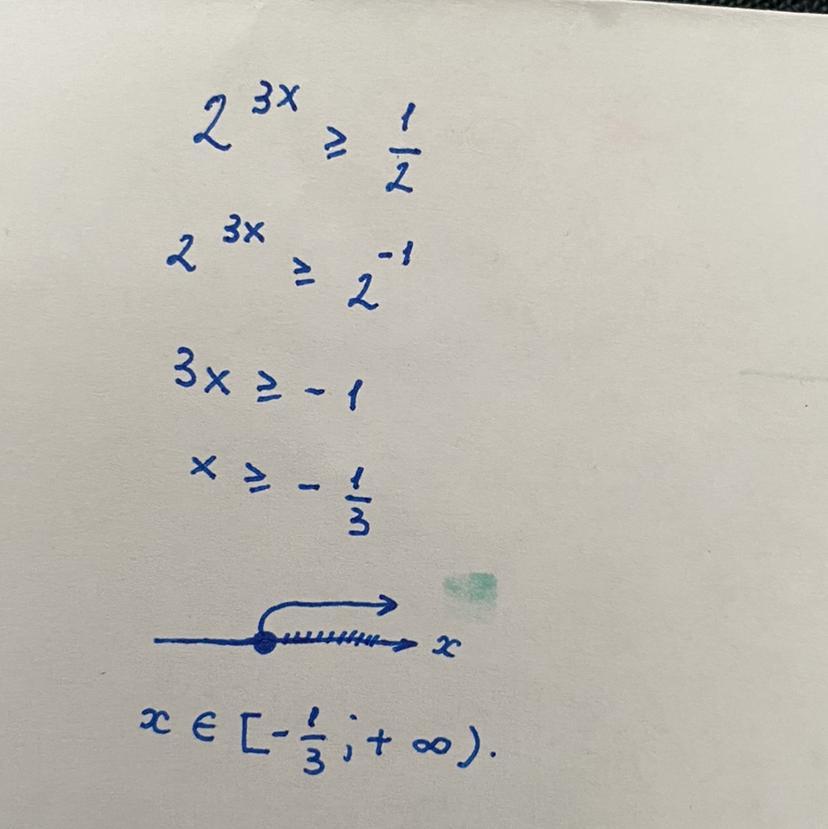 2^{3x} ≥ \frac{1}{2}
2^{3x} ≥ 2^{-1}
3x ≥ -1
x ≥ -\frac{1}{3}
x
x ∈ [-\frac{1}{3}; +∞).